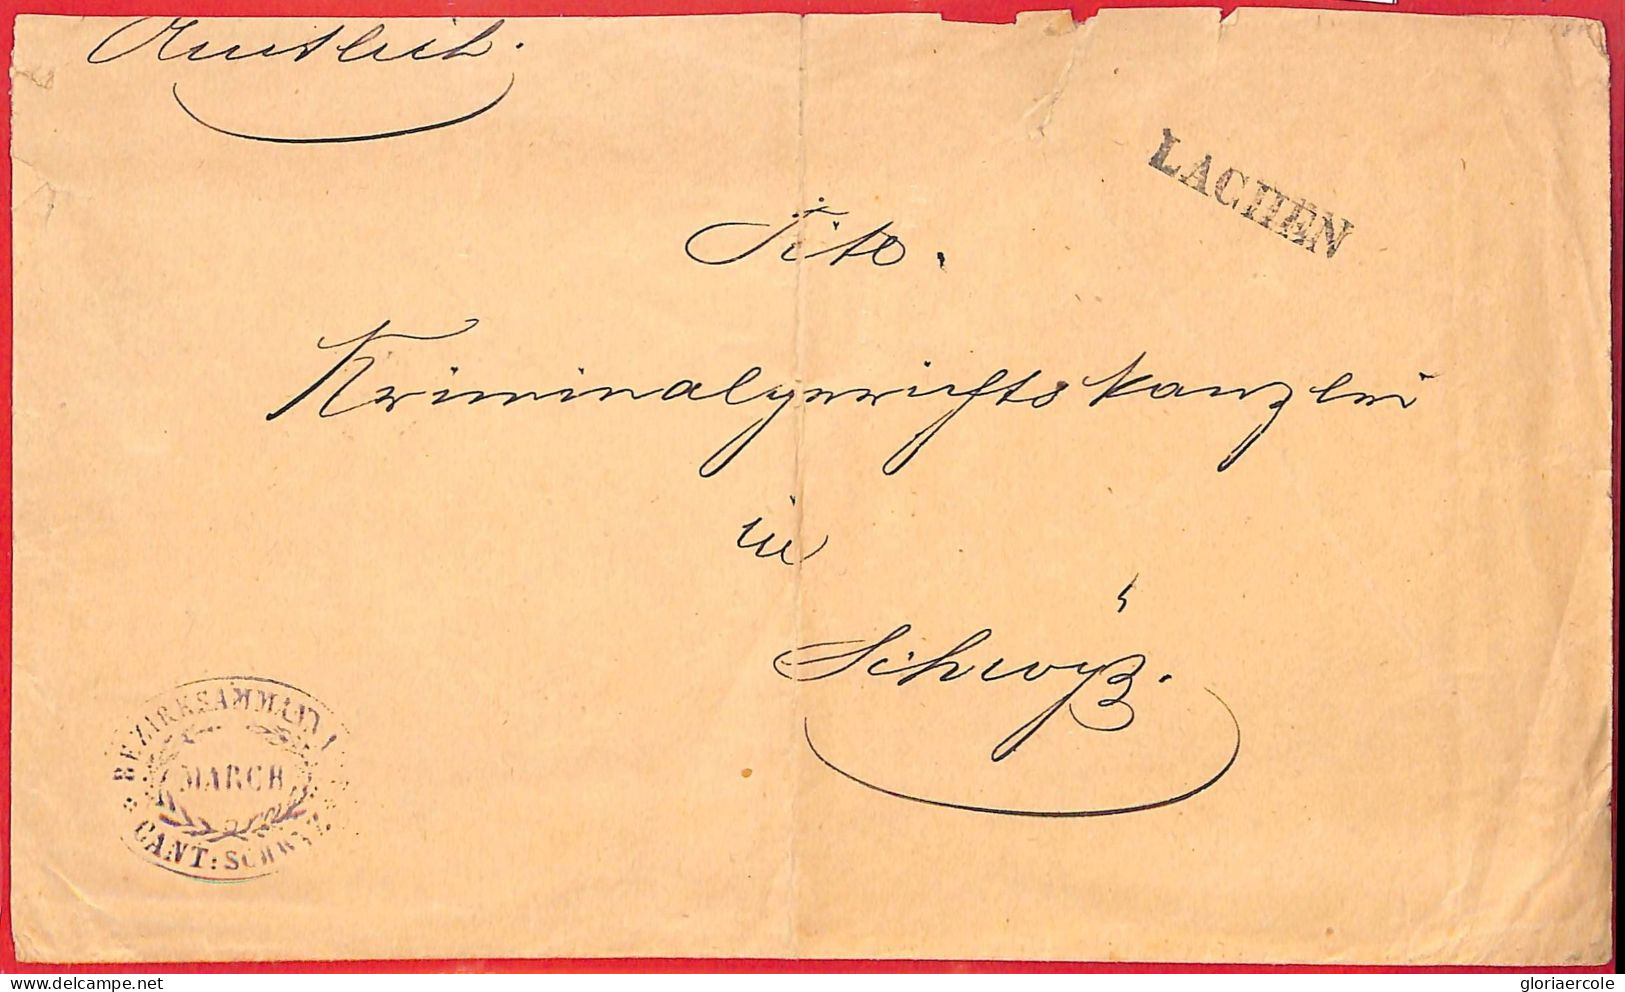 Amtlich.
LACHEN
Titl.
Kriminalgerichtskanzlei
in
Schwyz.
BEZIRKSAMMANN
MARCH
CANT: SCHWYZ
gloriaercole